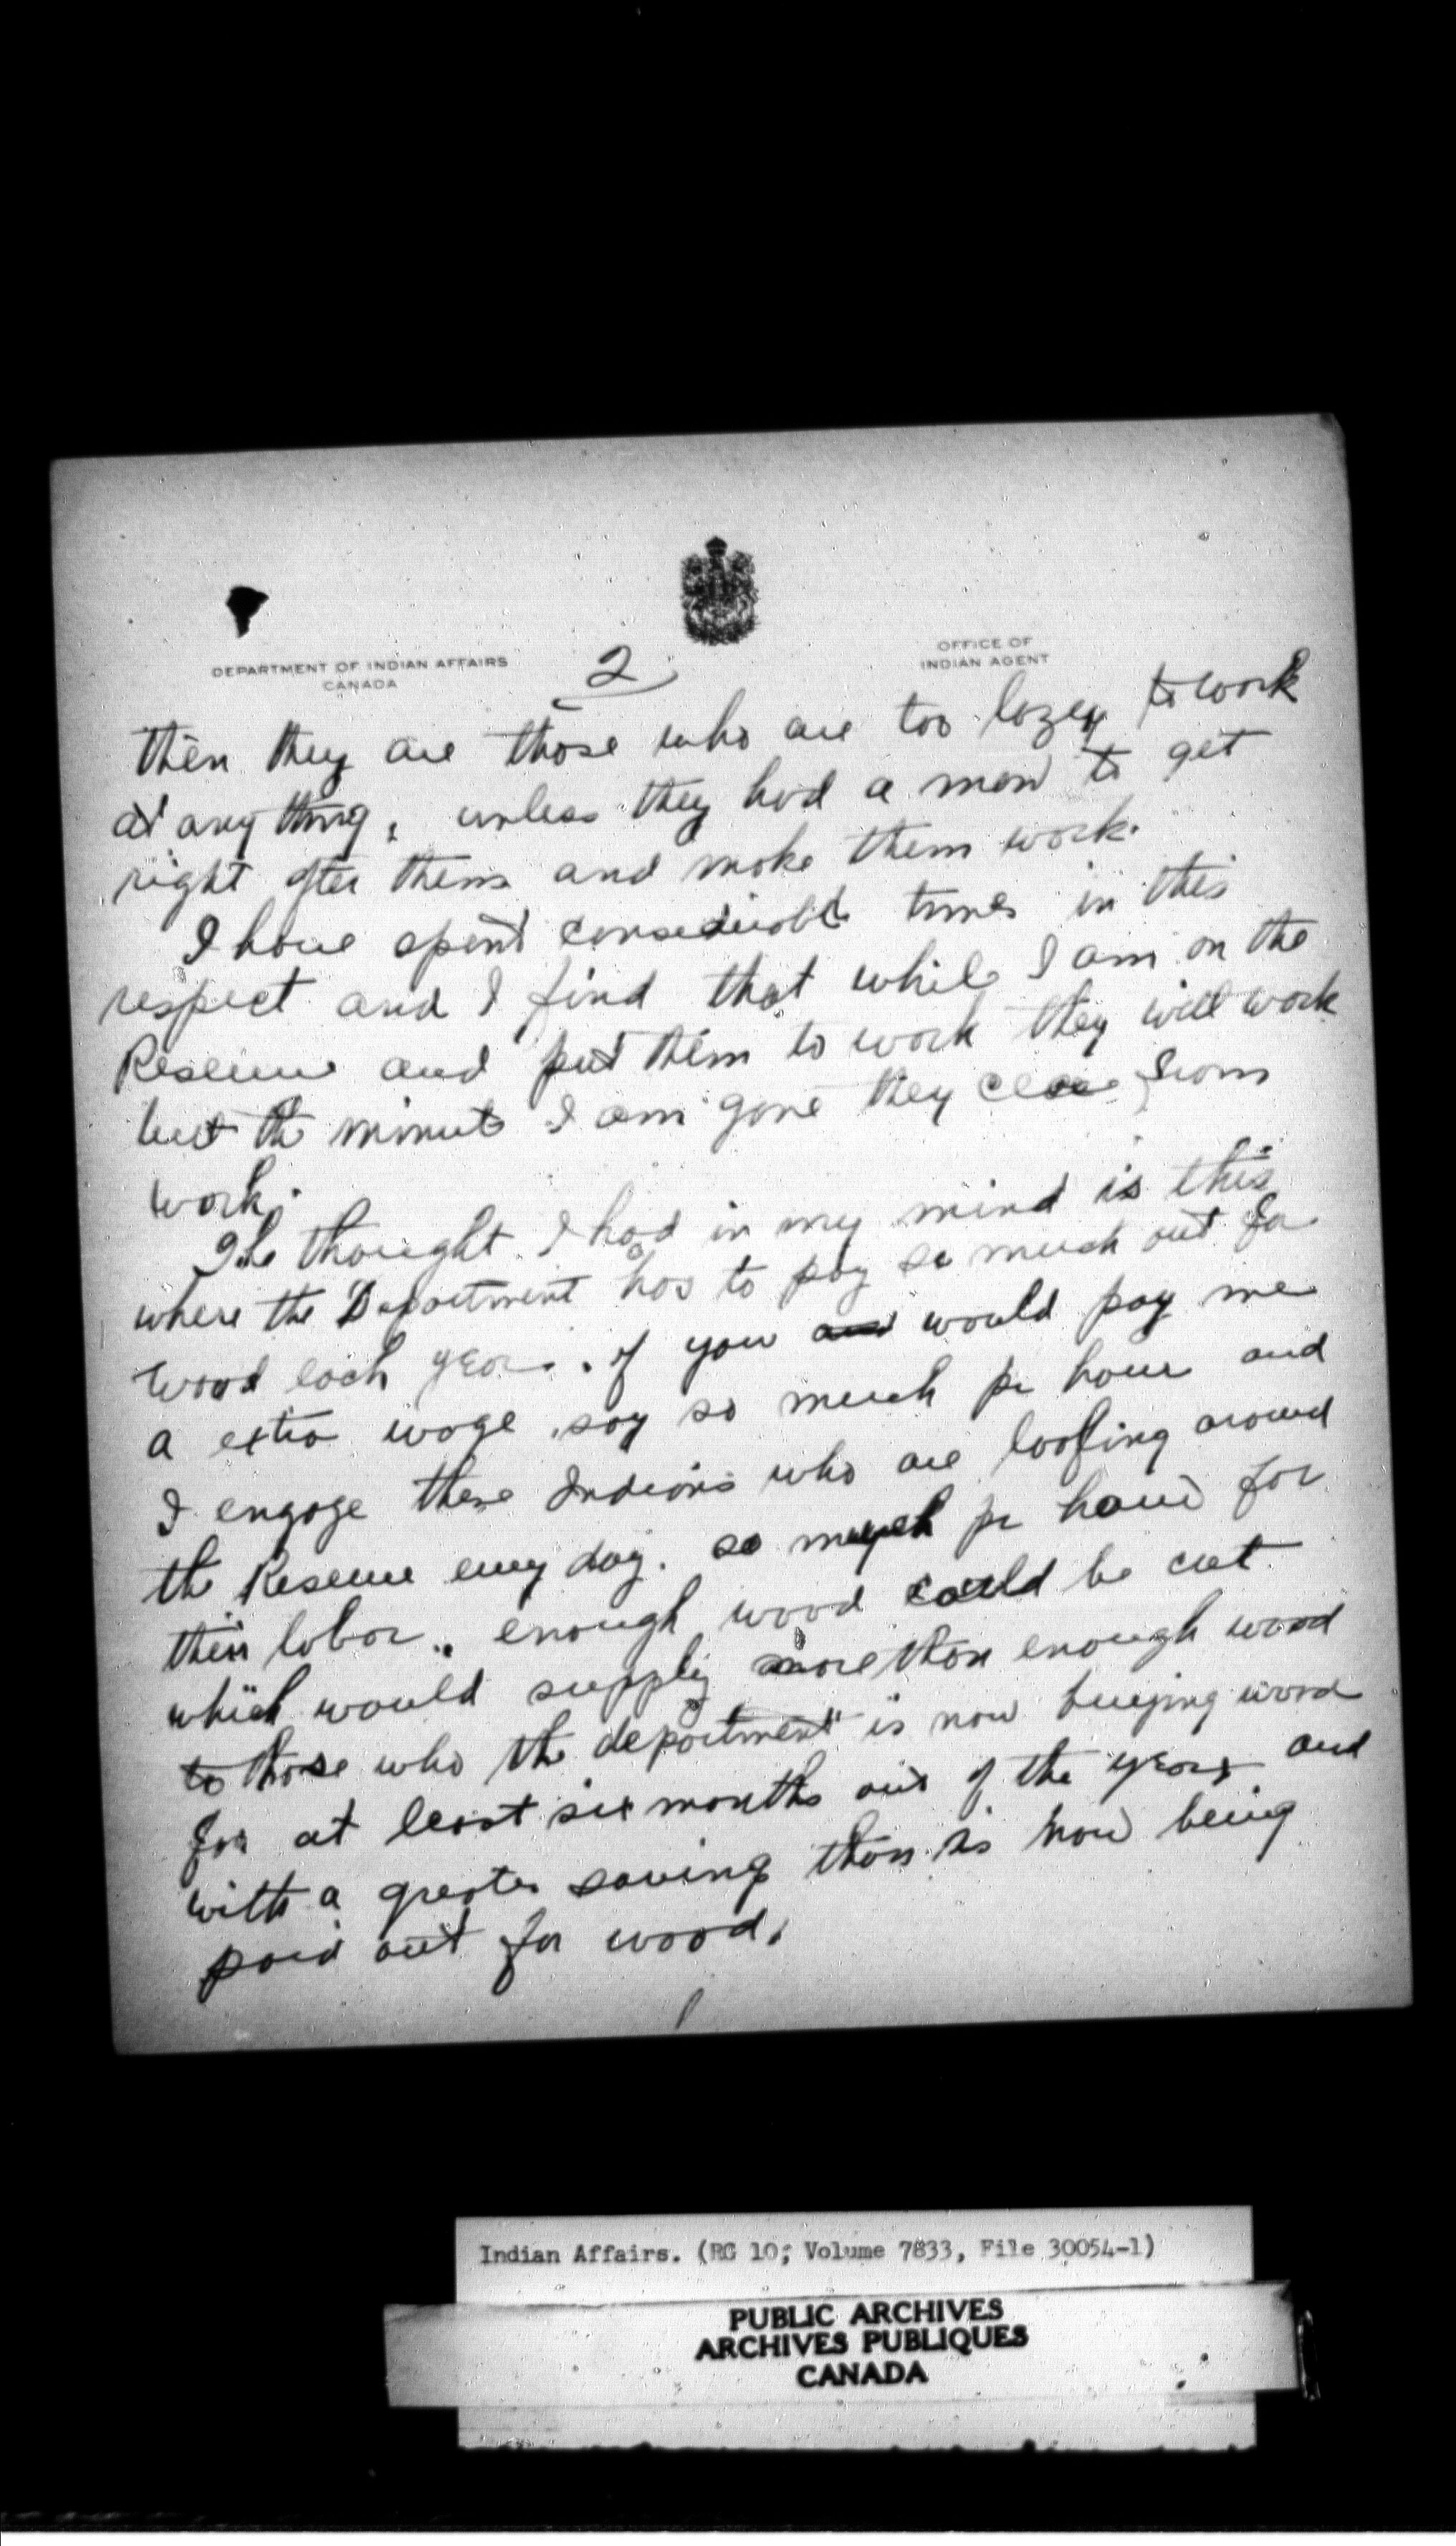 DEPARTMENT OF INDIAN AFFAIRS
CANADA
2
OFFICE OF
INDIAN AGENT
then they are those who are too lazey to work
at any thing, unless they had a man to get
right after them and make them work.
I have spent considerable times in this
respect and I find that while I am on the
Reserve and put them to work they will work
but the minute I am gone they cease from
work.
The thought I had in my mind is this
where the Department has to pay so much out for
wood each year. if you would pay me
a extra wage, say so much pr hour and
I engage these Indians who are loofing around
the Reserve every day. so much pr hour for
their labor., enough wood could be cut
which would supply more than enough wood
to those who the department is now buying wood
for at least six months out of the year and
with a greater saving than is now being
paid out for wood.
Indian Affairs. (RG 10; Volume 7833, File 30054-1)
PUBLIC ARCHIVES
ARCHIVES PUBLIQUES
CANADA